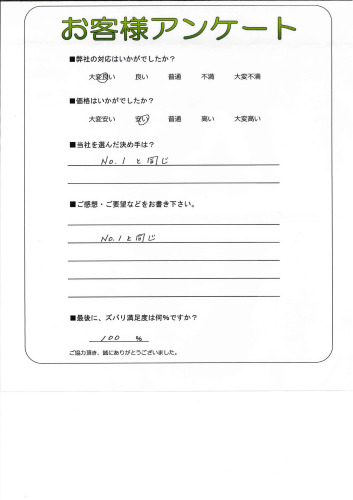 お客様アンケート
■弊社の対応はいかがでしたか？
大変良い 良い 普通 不満 大変不満
■価格はいかがでしたか？
大変安い 安い 普通 高い 大変高い
■当社を選んだ決め手は？
No.1 と同じ
■ご感想・ご要望などをお書き下さい。
No.1 と同じ
■最後に、ズバリ満足度は何%ですか？
100 %
ご協力頂き、誠にありがとうございました。